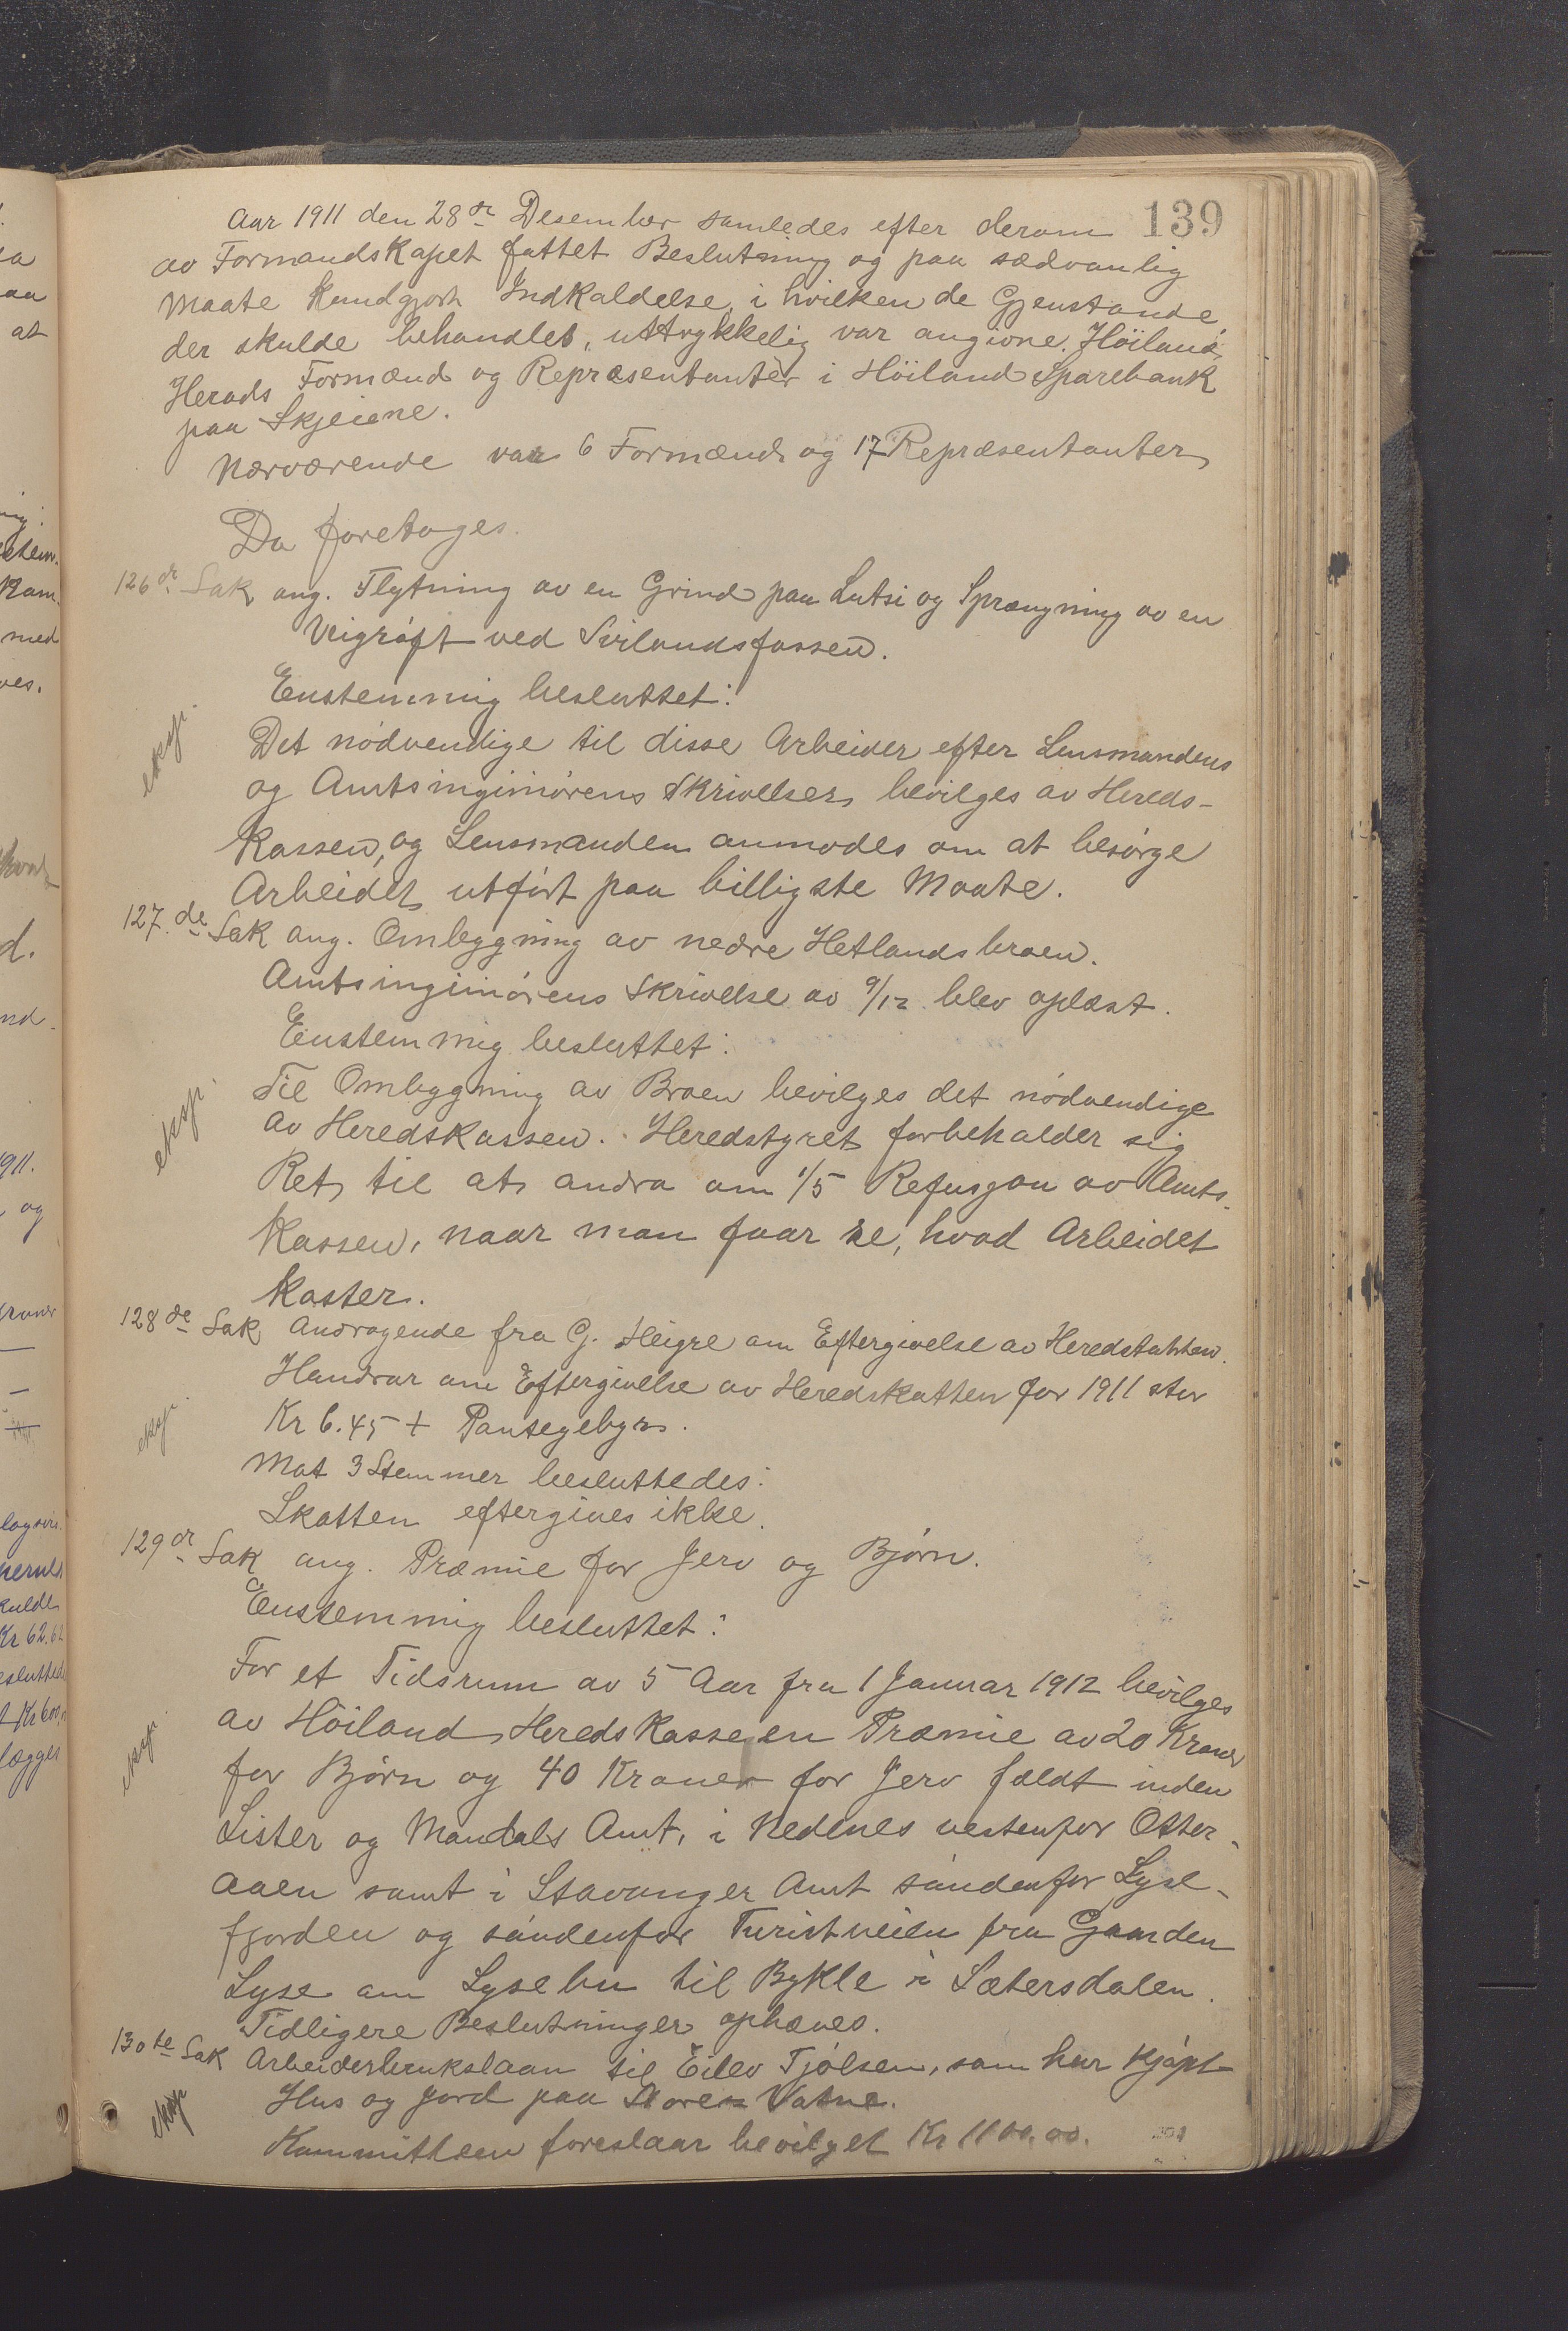 139
Aar 1911 den 28de Desember samledes efter derom
av Formandskapet fattet Beslutning og paa sædvanlig
Maate kundgjort Indkaldelse, i hvilken de Gjenstande,
der skulde behandles, uttrykkelig var angivne. Höiland
Herads Formænd og Repræsentanter i Höiland Sparebank
paa Skjeiene.
Nærværende var 6 Formænd og 17 Repræsentanter
Da foretoges.
126de Sak ang. Flytning av en Grind paa Lutsi og Sprængning av en
Veigrøft ved Svilandsfossen.
Enstemmig besluttet:
eksp.
Det nödvendige til disse Arbeider efter Lensmandens
og Amtsinginiörens Skrivelser bevilges av Hereds-
kassen, og Lensmanden anmodes om at besörge
Arbeidet utfört paa billigste Maate.
127.de Sak ang. Ombygging av nedre Hetlandsbroen.
Amtsinginiörens Skrivelse av 9/12 blev oplæst.
Enstemmig besluttet:
eksp.
Til Ombygging av Broen bevilges det nödvendige
av Heredskassen. Heredstyret forbeholder sig
Ret til at andra om 1/5 Refusjon av Amts-
kassen, naar man faar se, hvad Arbeidet
koster.
128de Sak Andragende fra G. Heigre om Eftergivelse av Heredskatten.
Handrar om Eftergivelse av Heredskatten for 1911 stor
eksp.
Kr 6.45 + Pantegebyr.
Mot 3 Stemmer besluttedes:
Skatten eftergives ikke.
129de Sak ang. Præmie for Jerv og Bjørn.
Enstemmig besluttet:
For et Tidsrum av 5 Aar fra 1 Januar 1912 bevilges
eksp.
av Höiland Heredskasse en Præmie av 20 Kroner
for Bjørn og 40 Kroner for Jerv fældt inden
Lister og Mandals Amt, i Nedenes vestenfor Otter-
aaen samt i Stavanger Amt söndenfor Lyse-
fjorden og söndenfor Turistveien fra Gaarden
Lyse om Lysebu til Bykle i Sætersdalen.
Tidligere Beslutninger ophæves.
130te Sak Arbeiderbrukslaan til Eilev Tjölsen, som har kjöpt
eksp
Hus og Jord paa Store Vatne.
Kommitteen foreslaar bevilget Kr 1100.00.